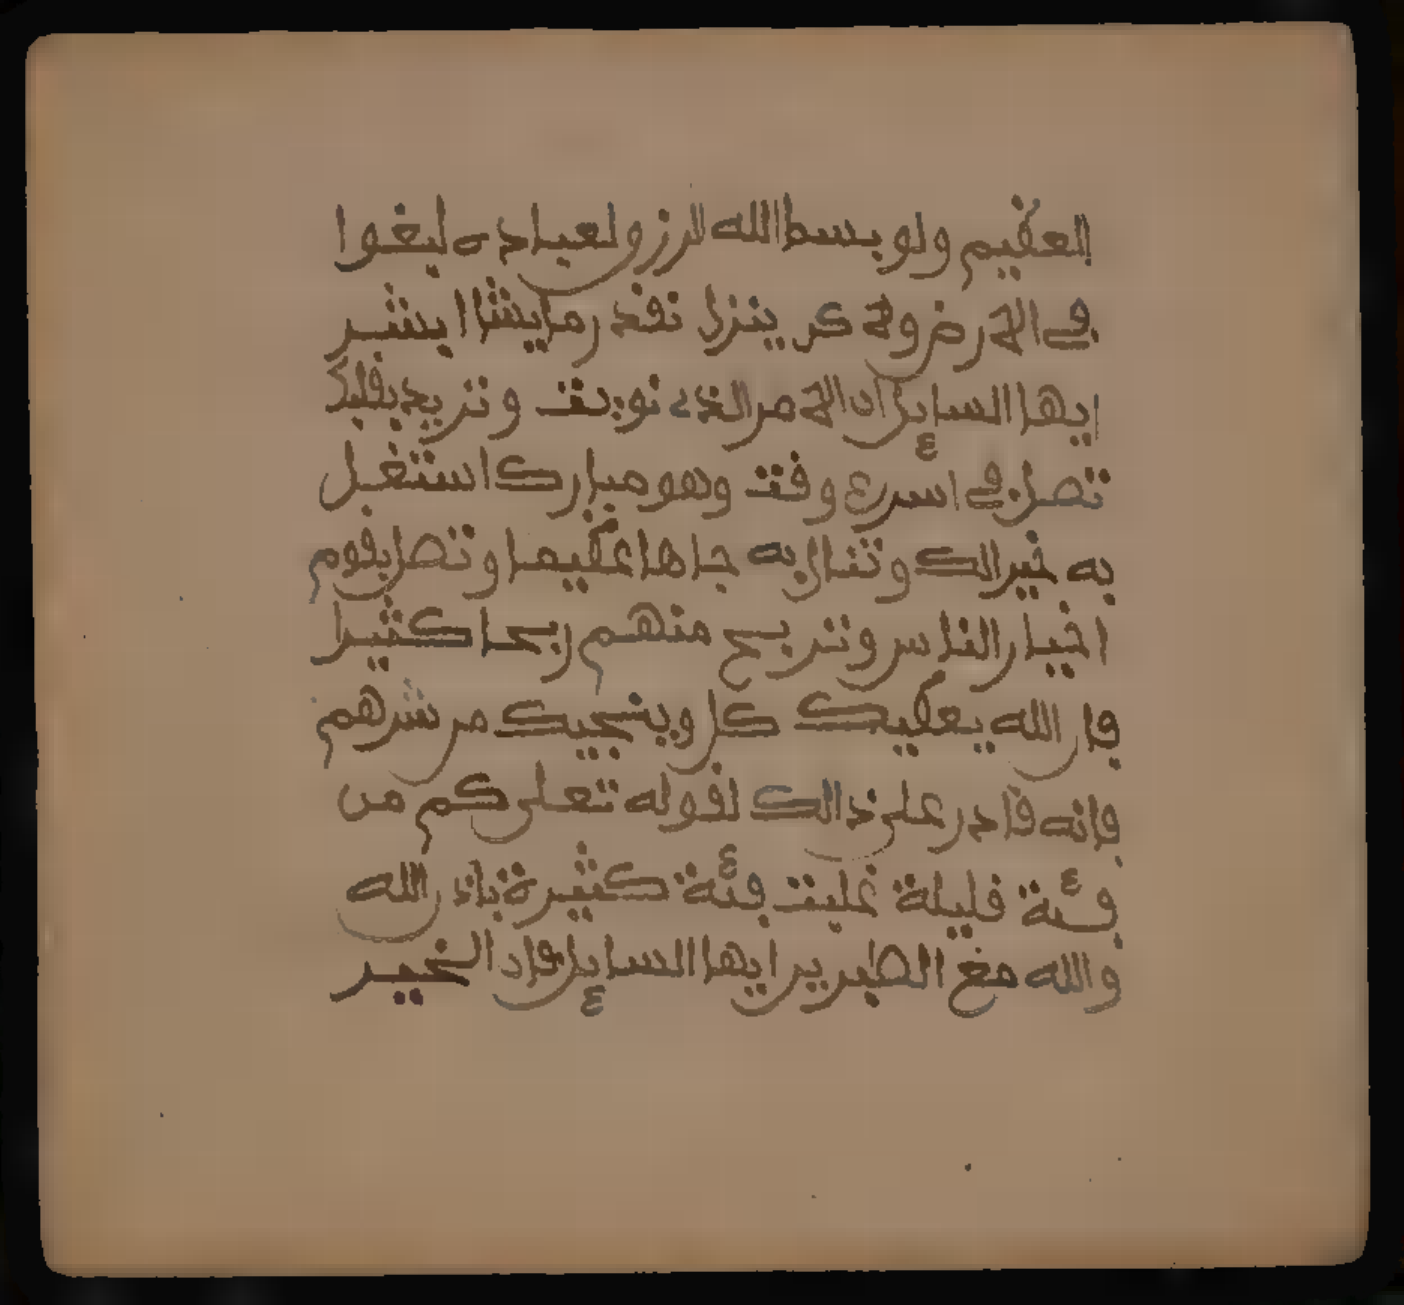 العظيم ولو بسط الله الرزق لعباده لبغوا
في الارض ولاكن ينزل بقدر ما يشاء ابشر
ايها السايل ان الامر الذي نويت وتريد بقلبك
تصل في اسرع وقت وهو مبارك استقبل
به خير الك وتنال به جاها عظيما وتصل بقوم
اخيار الناس وتربح منهم ربحا كثيرا
فان الله يعطيك كل وينجيك من شرهم
فانه قادر على ذالك لقوله تعلى كم من
فئة قليلة غلبت فئة كثيرة باذن الله
والله مع الصبرين ايها السايل فان الخير